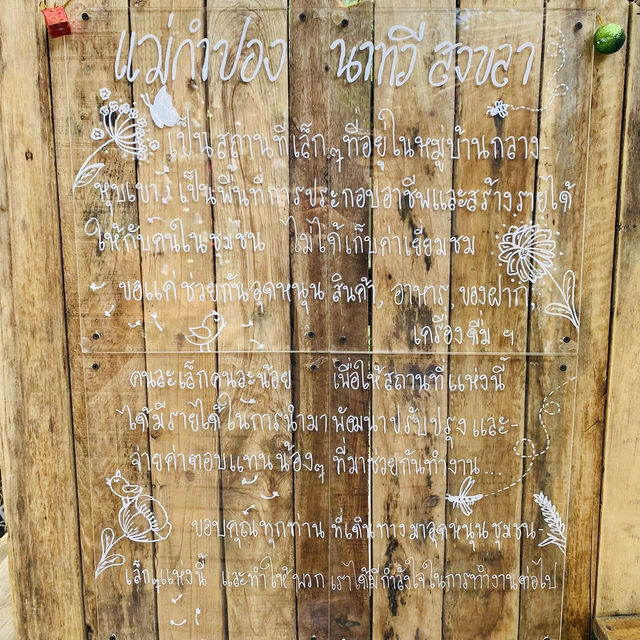 แม่กำปอง นาทวี สงขลา
เป็นสถานที่เล็กๆ ที่อยู่ในหมู่บ้านกลาง-
หุบเขา เป็นพื้นที่การประกอบอาชีพและสร้างรายได้
ให้กับคนในชุมชน ไม่ได้เก็บค่าเยี่ยมชม
ขอแค่ช่วยกันอุดหนุน สินค้า, อาหาร, ของฝาก,
เครื่องดื่ม ฯ
คนละเล็กคนละน้อย เพื่อให้สถานที่แห่งนี้
ได้มีรายได้ในการนำมาพัฒนาปรับปรุง และ-
จ่ายค่าตอบแทนน้องๆ ที่มาช่วยกันทำงาน...
ขอบคุณทุกท่าน ที่เดินทางมาอุดหนุนชุมชน-
เล็กๆแห่งนี้ และทำให้พวกเราได้มีกำลังใจในการทำงานต่อไป